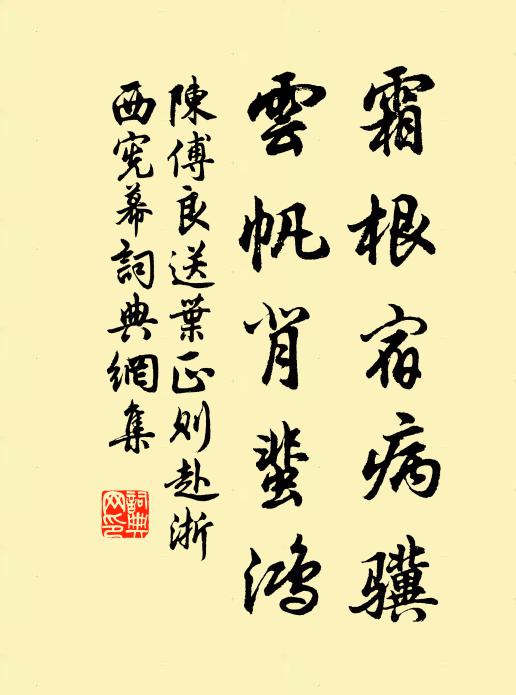 霜根宿病骥
雲帆背蜚鸿
陳傅良送葉正则赴浙
西宪幕詞典網集
詞典
网印